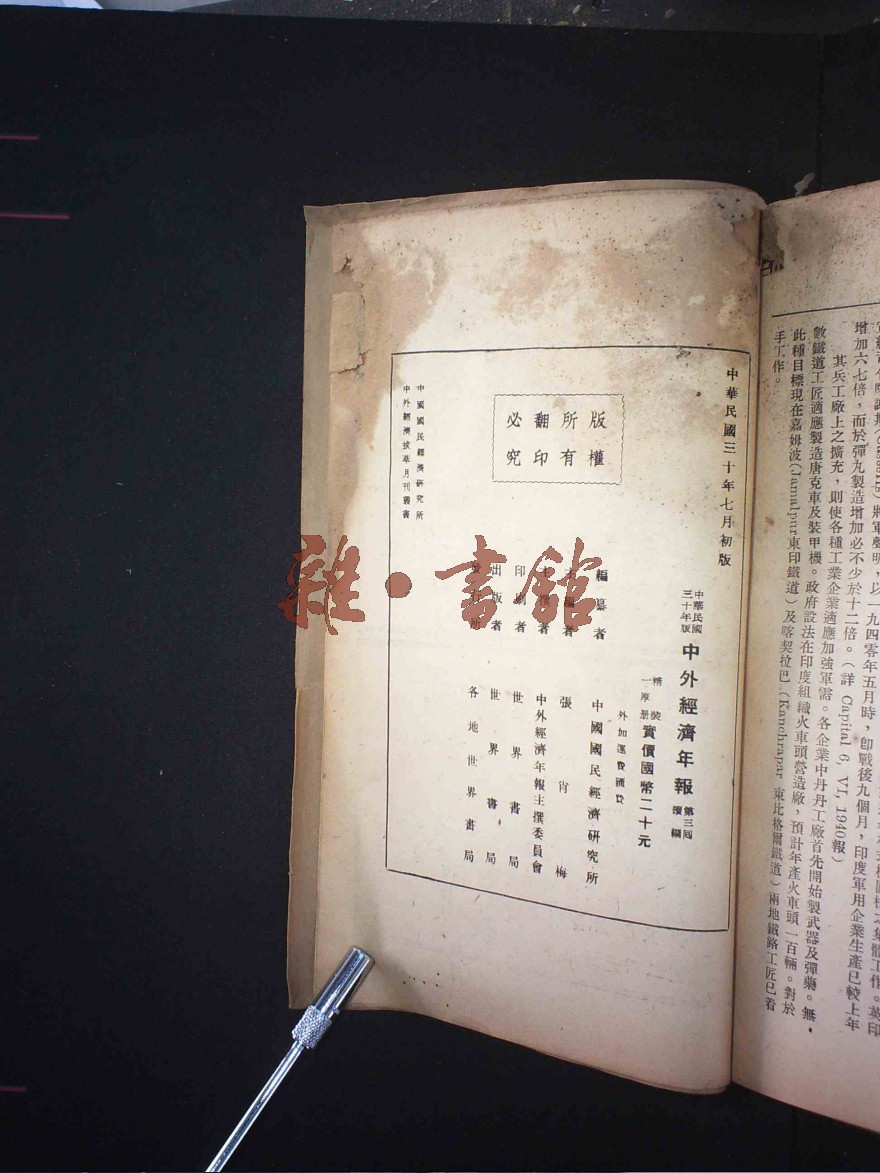 增加六七倍，而於彈丸製造增加必不少於十二倍。（詳 Capital 6, VI, 1940報）
其兵工廠上之擴充，則使各種工業企業適應加強軍需。各企業中丹丹工廠首先開始製武器及彈藥。無
數鐵道工匠適應製造唐克車及裝甲機。政府設法在印度組織火車頭營造廠，預計年產火車頭一百輛。對於
此種目標現在嘉姆波（Jamalpur東印鐵道）及喀契拉巴（Kanchrapar 東比格爾鐵道）兩地鐵路工匠已着
手工作。
中華民國三十年七月初版
中華民國
三十年版
中外經濟年報
第三回
續編
精裝
一厚册
實價國幣二十元
外加運費匯費
版權
所有
翻印
必究
編纂者
中國國民經濟研究所
主編者
張肖梅
主撰者
中外經濟年報主撰委員會
印刷者
世界書局
出版者
世界書局
發行所
各地世界書局
中國國民經濟研究所
中外經濟拔萃月刊叢書
雜·書館